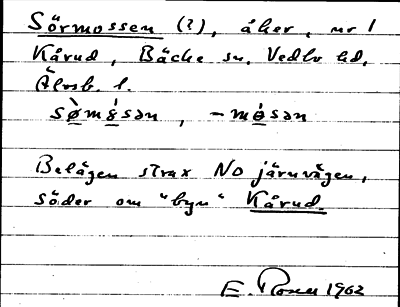 Sörmossen (?), åker, nr 1
Kårud, Bäcke sn, Vedbo hd,
Älvsb. l.
sø̀mɞ́sən, -mɵ́sən
Belägen strax NO järnvägen,
söder om "byn" Kårud.
E. Rosen 1962